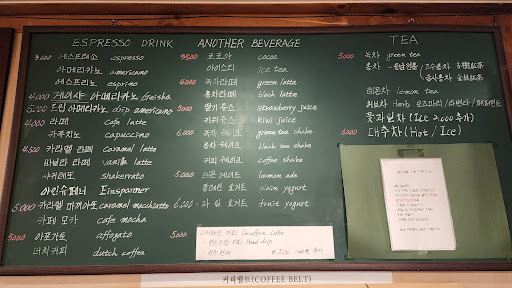 ESPRESSO DRINK
3,000 에스프레소 espresso
아메리카노 americano
에스프리노 esprino
4,000 게이샤 아메리카노 Geisha
5,000 드립 아메리카노 drip americano
4,000 라떼 cafe latte
카푸치노 capuccino
4,500 카라멜 라떼 caramel latte
바닐라 라떼 vanilla latte
샤케라또 shakerrato
아인슈페너 Einspanner
5,000 카라멜 마끼아또 caramel macchiatto
카페 모카 cafe mocha
5,000 아포가토 affogato
더치커피 dutch coffee
ANOTHER BEVERAGE
3500 코코아 cocoa
아이스티 ice tea
4,000 녹차라떼 green latte
홍차라떼 black latte
5,000 딸기쥬스 strawberry juice
키위쥬스 kiwi juice
6,000 녹차쉐이크 green tea shake
홍차 쉐이크 black tea shake
커피쉐이크 coffee shake
5,000 레몬에이드 lemon ade
플레인 요거트 plain yogurt
6,000 과일 요거트 fruit yogurt
5000 디카페인 커피 Decaffein Coffee
Hand-drip
TEA
5,000 녹차 green tea
홍차
레몬차 lemon tea
허브차 Herb
꽃과일차 (ICE 2,000 추가)
6,000 대추차 (Hot / Ice)
커피벨트(COFFEE BELT)